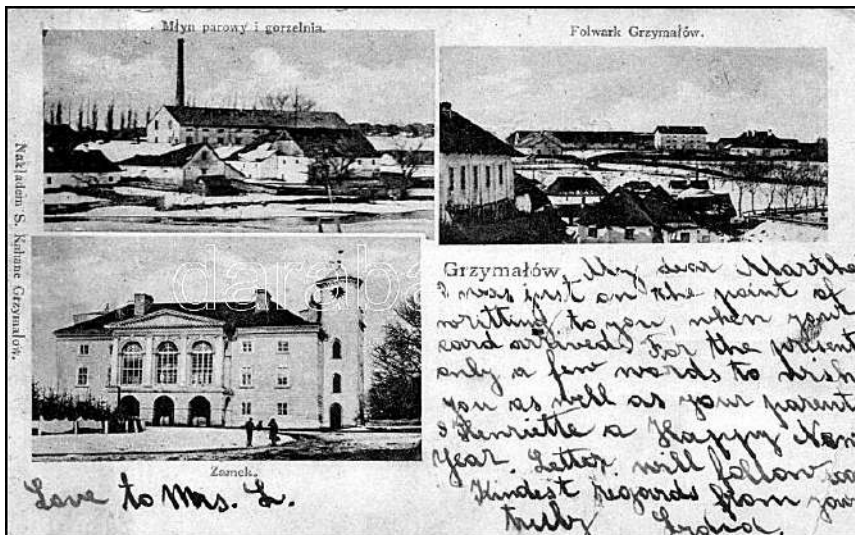 Młyn parowy i gorzelnia.
Folwark Grzymałów.
Nakładem S. Kahane Grzymałów.
daraba
Grzymałów.
My dear Marthe
I was just on the point of
writting to you, when your
card arrived. For the present
only a few words to wish
you as well as your parent
& Henriette a Happy New
Year. Letter will follow
Kindest regards from your
truly
Zamek.
Love to Mrs. L.